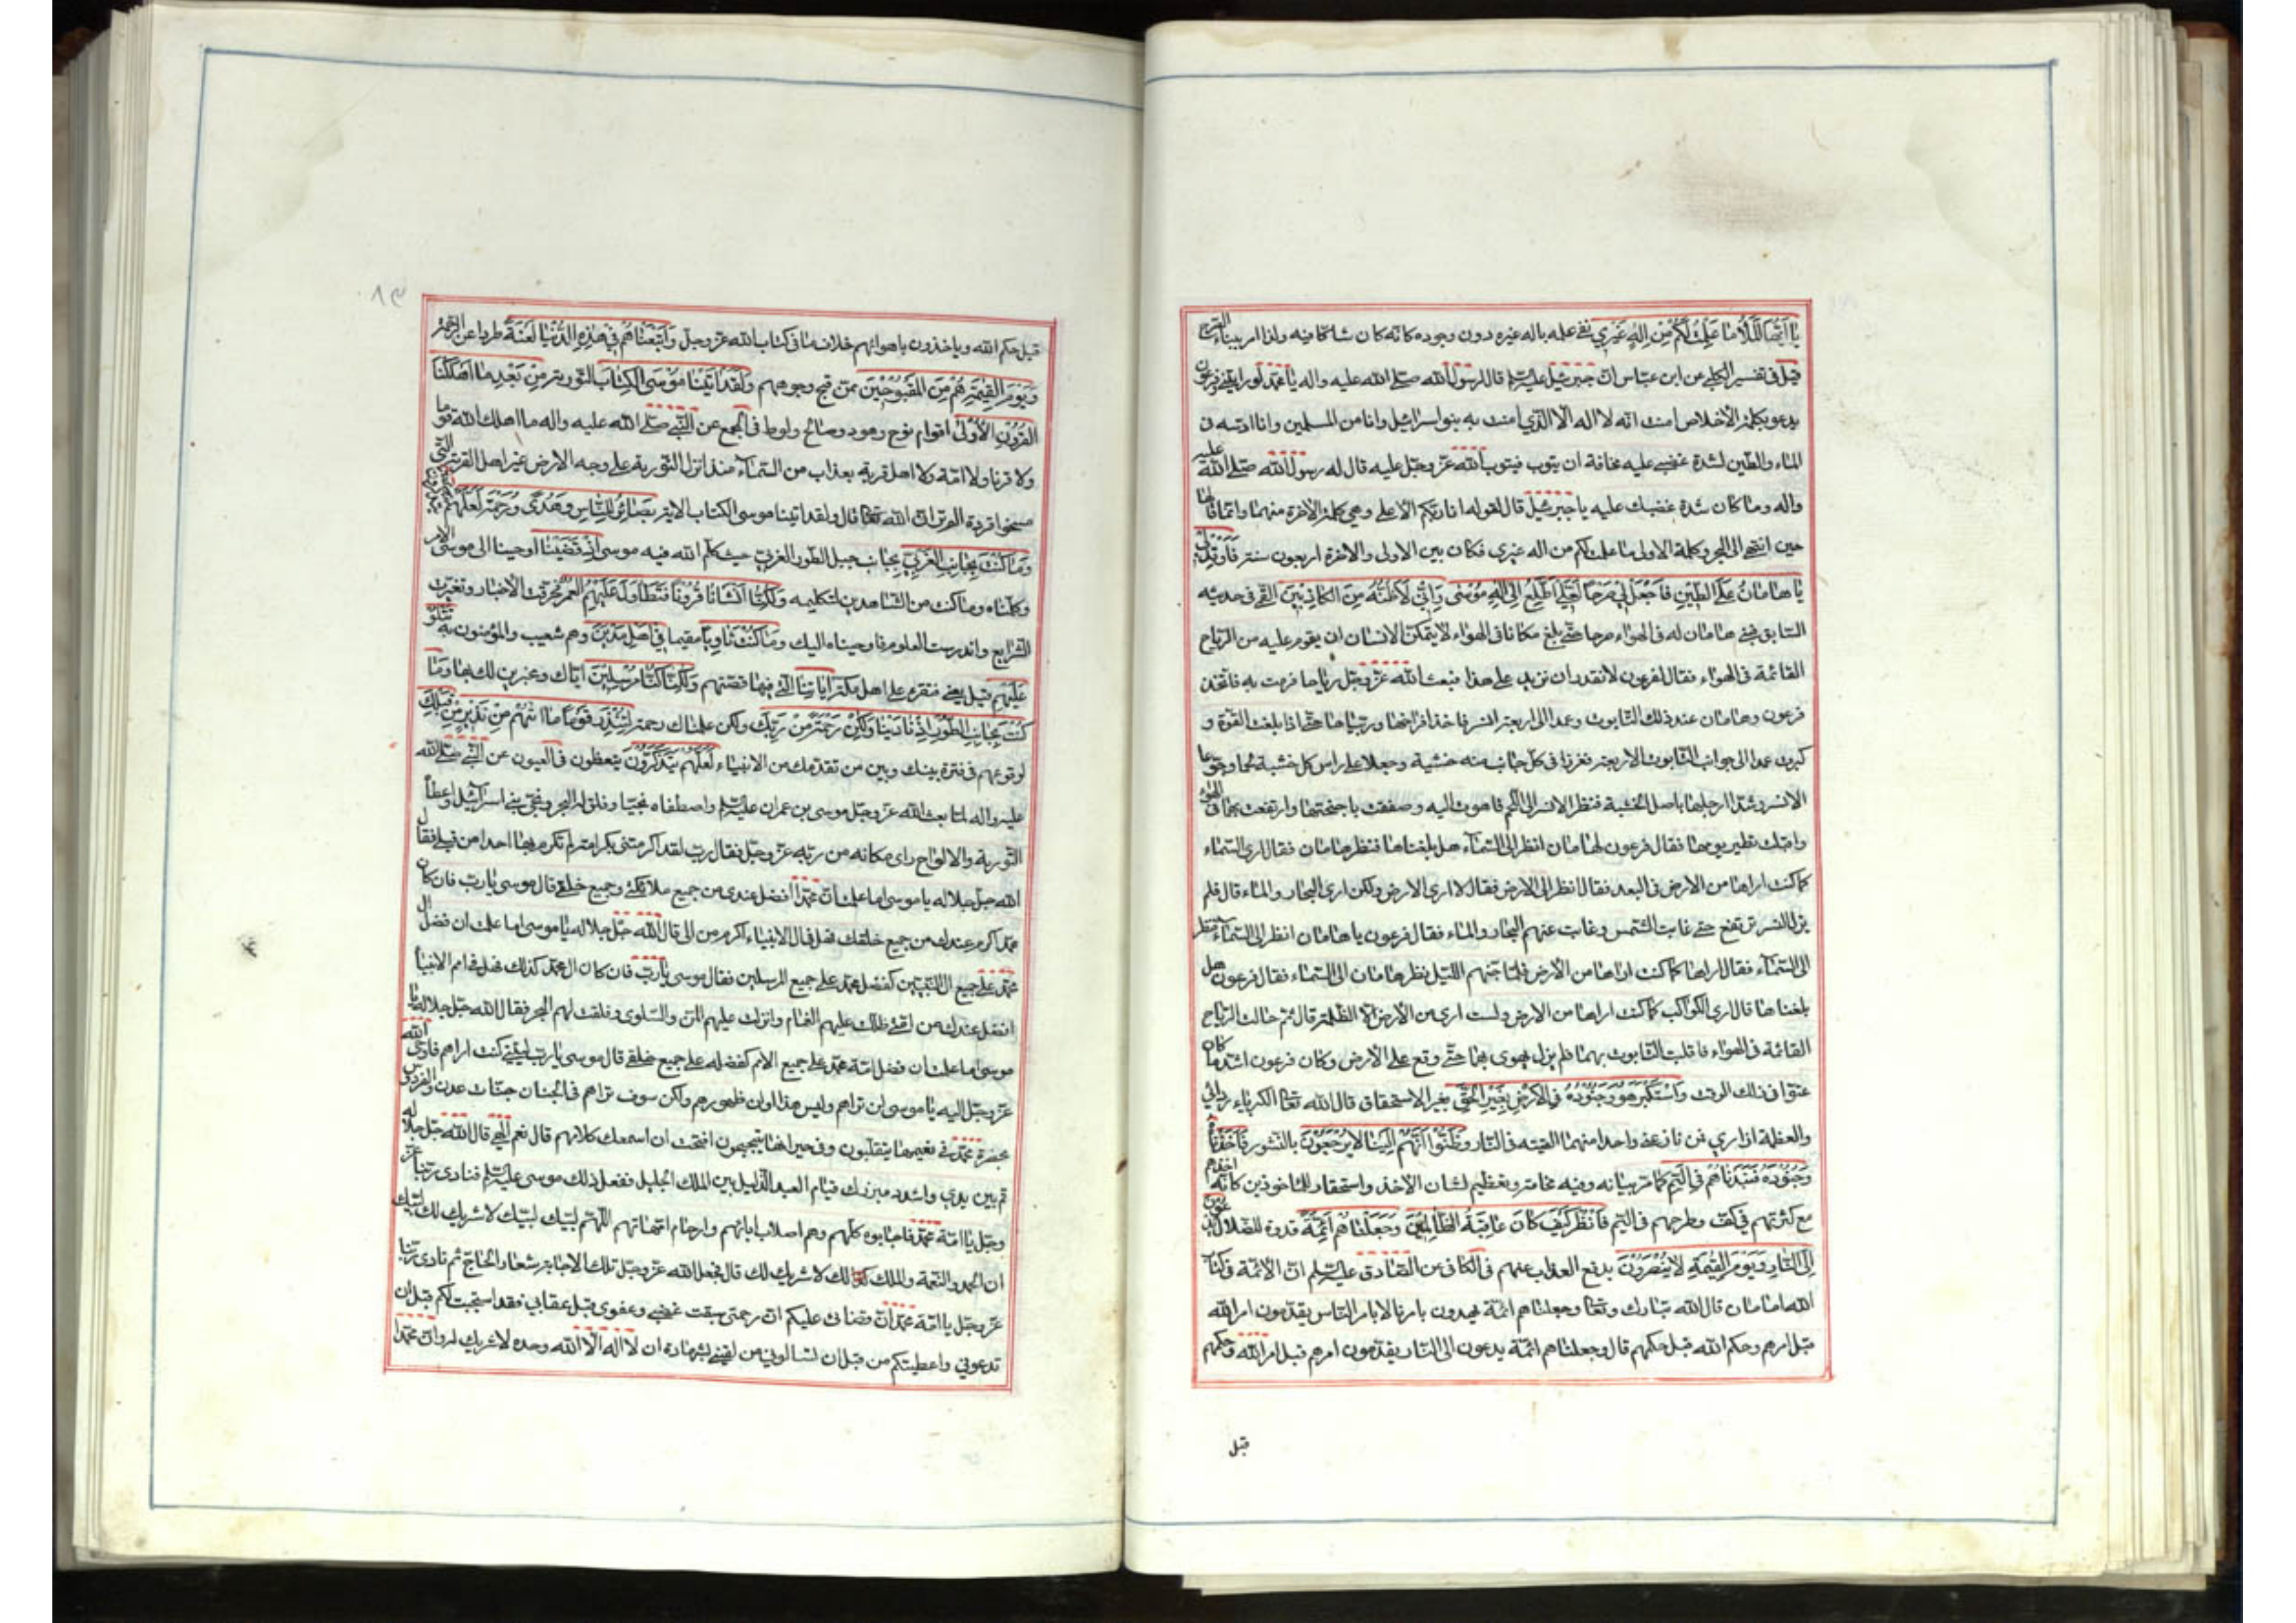 يا ايّها الملأ ما علمت لكم من اله غيري نفى علمه باله غيره دون وجوده كانّه كان شاكا فيه ولذا امر ببناء الصرح
قيل في تفسير الكلبي عن ابن عباس ان جبرئيل عليه السّلم قال لرسول الله صلّى الله عليه واله يا محمّد لو رايتني وفرعون
يدعو بكلمة الاخلاص امنت انه لا اله الا الّذي امنت به بنو اسرائيل وانا من المسلمين وانا ادسّه في
الماء والطّين لشدّة غضبي عليه مخافة ان يتوب فيتوب الله عزّ وجلّ عليه قال له رسول الله صلّى الله عليه
واله وما كان شدّة غضبك عليه يا جبرئيل قال لقوله انا ربّكم الاعلى وهي كلمته الاخرة منهما وانّما قالها
حين انتهى الى البحر وكلمة الاولى ما علمت لكم من اله غيري فكان بين الاولى والاخرة اربعون سنة فاوقد لي
يا هامان على الطّين فاجعل لي صرحا لعلّي اطّلع الى اله موسى وانّي لاظنّه من الكاذبين القمّي في حديثه
السّابق فبنى هامان له في الهواء صرحا حتّى بلغ مكانا في الهواء لا يتمكّن الانسان ان يقوم عليه من الرّياح
القائمة في الهواء فقال لفرعون لا نقدر ان نزيد على هذا فبعث الله عزّ وجلّ رياحا فرمت به فاتّخذ
فرعون وهامان عند ذلك التّابوت وعمدا الى اربعة انسر فاخذا فراخها وربّياها حتّى اذا بلغت القوّة و
كبرت عمدا الى جوانب التّابوت الاربعة فغرزا في كلّ جانب منه خشبة وجعلا على راس كل خشبة لحما وجوّعا
الانسر وشدّا ارجلها باصل الخشبة فنظر الانسر الى اللّحم فاهوت اليه وصفقت باجنحتها وارتفعت بهما في الهواء
واقبلت تطير يومها فقال فرعون لهامان انظر الى السّماء هل بلغناها فنظر هامان فقال ارى السّماء
كما كنت اراها من الارض في البعد فقال انظر الى الارض فقال لا ارى الارض ولكن ارى البحار والماء قال فلم
يزل النسر ترتفع حتّى غابت الشّمس وغابت عنهم البحار والماء فقال فرعون يا هامان انظر الى السّماء فنظر
الى السّماء فقال اراها كما كنت اراها من الارض فلمّا جنّهم اللّيل نظر هامان الى السّماء فقال فرعون هل
بلغناها قال ارى الكواكب كما كنت اراها من الارض ولست ارى من الارض الا الظّلمة قال ثمّ حالت الرّياح
القائمة في الهواء فاقلبت التّابوت بهما فلم يزل يهوى بهما حتّى وقع على الارض وكان فرعون اشدّ ما كان
عتوّا في ذلك الوقت واستكبر هو وجنوده في الارض بغير الحقّ بغير الاستحقاق قال الله تعالى الكبرياء ردائي
والعظمة ازاري فمن نازعني واحدا منهما القيته في النّار وظنّوا انّهم الينا لا يرجعون بالنّشور فاخذناه
وجنوده فنبذناهم في اليمّ كما مرّ بيانه وفيه فخامة وتعظيم لشان الاخذ واستحقار للماخوذين كانّه اخذهم
مع كثرتهم في كفّ وطرحهم في اليمّ فانظر كيف كان عاقبة الظّالمين وجعلناهم ائمّة قدوة للضّلال يدعون
الى النّار ويوم القيمة لا ينصرون بدفع العذاب عنهم في الكافي عن الصّادق عليه السّلم انّ الائمّة في كتاب
الله امامان قال الله تبارك وتعالى وجعلناهم ائمّة يهدون بامرنا لا بامر النّاس يقدّمون امر الله
قبل امرهم وحكم الله قبل حكمهم قال وجعلناهم ائمّة يدعون الى النّار يقدّمون امرهم قبل امر الله وحكمهم
قبل
قبل حكم الله وياخذون باهوائهم خلاف ما في كتاب الله عزّ وجلّ واتبعناهم في هذه الدّنيا لعنة طردا عن الرّحمة
ويوم القيمة هم من المقبوحين ممّن قبح وجوههم ولقد اتينا موسى الكتاب التّورية من بعد ما اهلكنا
القرون الاولى اقوام نوح وهود وصالح ولوط في المجمع عن النّبيّ صلّى الله عليه واله ما اهلك الله قوما
ولا قرنا ولا امّة ولا اهل قرية بعذاب من السّماء منذ انزل التّورية على وجه الارض غير اهل القرية الّتي
مسخوا قردة الم تر انّ الله تعالى قال ولقد اتينا موسى الكتاب الاية بصائر للنّاس وهدى ورحمة لعلّهم يتذكّرون
وما كنت بجانب الغربيّ بجانب جبل الطّور الغربيّ حيث كلّم الله فيه موسى اذ قضينا اوحينا الى موسى الامر
وكلّمناه وما كنت من الشّاهدين لتكليمه ولكنّا انشأنا قرونا فتطاول عليهم العمر فحرّفت الاخبار وتغيّرت
الشّرايع واندرست العلوم فاوحيناه اليك وما كنت ثاويا مقيما في اهل مدين وهم شعيب والمؤمنون به تتلو
عليهم قيل يعني فتقرء على اهل مكّة اياتنا الّتي فيها قصّتهم ولكنّا كنّا مرسلين ايّاك ومخبرين لك بها وما
كنت بجانب الطّور اذ نادينا ولكن رحمة من ربّك ولكن علمناك رحمة لتنذر قوما ما اتيهم من نذير من قبلك
لوقوعهم في فترة بينك وبين من تقدّمك من الانبياء لعلّهم يتذكّرون يتعظون في العيون عن النّبيّ صلّى الله
عليه واله لما بعث الله عزّ وجلّ موسى بن عمران عليه السّلم واصطفاه نجيّا وفلق له البحر ونجّى بني اسرائيل واعطاه
التّورية والالواح راى مكانه من ربّه عزّ وجلّ فقال ربّ لقد اكرمتني بكرامة لم تكرم بها احدا من قبلي فقال
الله جلّ جلاله يا موسى اما علمت انّ محمّدا افضل عندي من جميع ملائكتي وجميع خلقي قال موسى يا ربّ فان كان
محمّد اكرم عندك من جميع خلقك فهل في ال الانبياء اكرم من الى قال الله جلّ جلاله يا موسى اما علمت ان فضل ال
محمّد على جميع ال النّبيّين كفضل محمّد على جميع المرسلين فقال موسى يا ربّ فان كان ال محمّد كذلك فهل في امم الانبياء
افضل عندك من امّتي ظلّلت عليهم الغمام وانزلت عليهم المنّ والسّلوى وفلقت لهم البحر فقال الله جلّ جلاله يا
موسى اما علمت ان فضل امّة محمّد على جميع الامم كفضله على جميع خلقي قال موسى يا ربّ ليتني كنت اراهم فاوحى الله
عزّ وجلّ اليه يا موسى لن تراهم وليس هذا اوان ظهورهم ولكن سوف تراهم في الجنان جنّات عدن والفردوس
بحضرة محمّد في نعيمها يتقلّبون وفي خيراتها يتبجبحون افتحبّ ان اسمعك كلامهم قال نعم الهي قال الله جلّ جلاله
قم بين يدي واشدد ميزرك قيام العبد الذّليل بين الملك الجليل ففعل ذلك موسى عليه السّلم فنادى ربّنا عزّ
وجلّ يا امّة محمّد فاجابوه كلّهم وهم في اصلاب ابائهم وارحام امّهاتهم اللّهمّ لبّيك لبّيك لا شريك لك لبّيك
ان الحمد والنّعمة والملك لك لا شريك لك قال فجعل الله عزّ وجلّ تلك الاجابة شعار الحاجّ ثم نادى ربّنا
عزّ وجلّ يا امّة محمّد انّ قضائي عليكم انّ رحمتي سبقت غضبي وعفوي قبل عقابي فقد استجبت لكم قبل ان
تدعوني واعطيتكم من قبل ان تسالوني من لقيني بشهادة ان لا اله الا الله وحده لا شريك له وانّ محمّدا